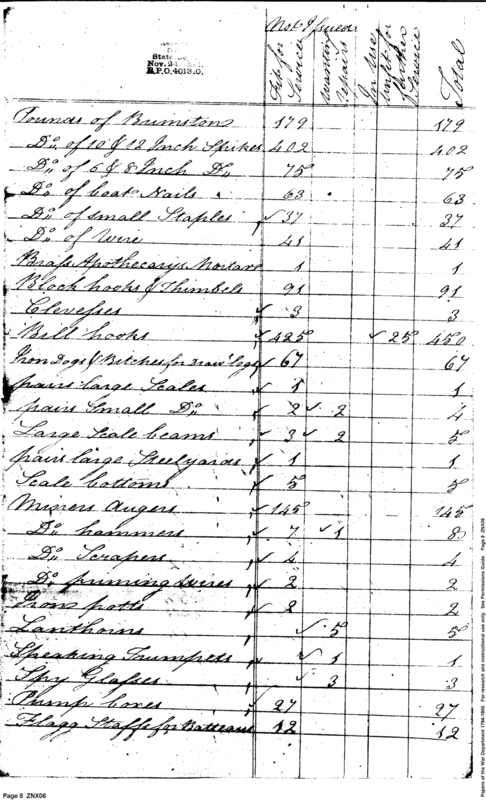 State
Nov. 24
R.P.O. 4013.0.
Not Issued
Fit for Service
Wanting repairs
In Use unfit for further Service
Total
Pounds of Brumston 179 179
Do,, of 10 & 12 Inch Spikes 402 402
Do,, of 6 & 8 Inch Do,, 75 75
Do,, of boat Nails 63 63
Do,, of small Staples ✓ 37 37
Do,, of Wire 41 41
Brass Apothecarys Mortar 1 1
Block hooks & Thimbels 91 91
Clevesses ✓ 3 3
Bill hooks ✓ 425 ✓ 25 450
Iron Dogs & Bitches for draw'logs ✓ 67 67
pairs large Scales ✓ 1 1
pairs Small Do,, ✓ 2 ✓ 2 4
Large Scale beams ✓ 3 ✓ 2 5
pairs large Steelyards ✓ 1 1
Scale bottoms ✓ 5 5
Miners Augers ✓ 145 145
Do,, hammers ✓ 7 ✓ 1 8
Do,, Scrapers ✓ 4 4
Do,, priming wires ✓ 2 2
Iron potts ✓ 2 2
Lanthorns ✓ 5 5
Speaking Trumpets ✓ 1 1
Spy Glasses ✓ 3 3
Pump boxes ✓ 27 27
Flagg Staffs for Batteaus 12 12
Page 8 ZNX06
Papers of the War Department 1784-1800. For research and instructional use only. See Permissions Guide. Page 8 ZNX06